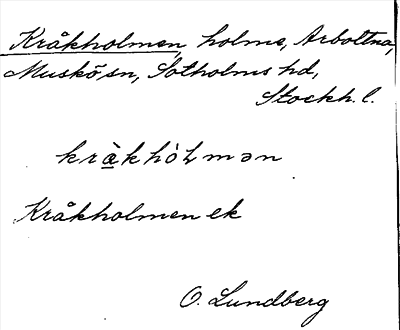 Kråkholmen, holme, Arboltna,
Muskö sn, Sotholms hd,
Stockh. l.
kråkhòLmən
Kråkholmen ek
O. Lundberg